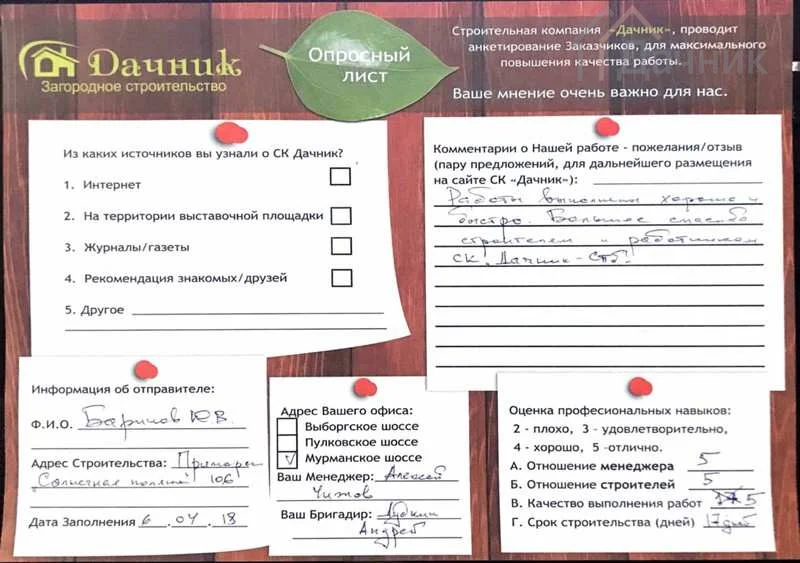 Дачник
Загородное строительство
Опросный
лист
Строительная компания «Дачник», проводит
анкетирование Заказчиков, для максимального
повышения качества работы.
Дачник
Ваше мнение очень важно для нас.
Из каких источников вы узнали о СК Дачник?
1. Интернет
2. На территории выставочной площадки
3. Журналы/газеты
4. Рекомендация знакомых/друзей
5. Другое
Комментарии о Нашей работе - пожелания/отзыв
(пару предложений, для дальнейшего размещения
на сайте СК «Дачник»):
Работы выполнены хорошо и
быстро. Большое спасибо
строителем и работникам
СК. Дачник-Спб.
Информация об отправителе:
Ф.И.О. Баринов Ю.В.
Адрес Строительства:
Солнечная 106
Дата Заполнения 6 .04 .18
Адрес Вашего офиса:
Выборгское шоссе
Пулковское шоссе
Мурманское шоссе
Ваш Менеджер: Алексей
Чижов
Ваш Бригадир: Дудкин
Андрей
Оценка професиональных навыков:
2 - плохо, 3 - удовлетворительно,
4 - хорошо, 5 -отлично.
А. Отношение менеджера 5
Б. Отношение строителей 5
В. Качество выполнения работ 5
Г. Срок строительства (дней) 17дней